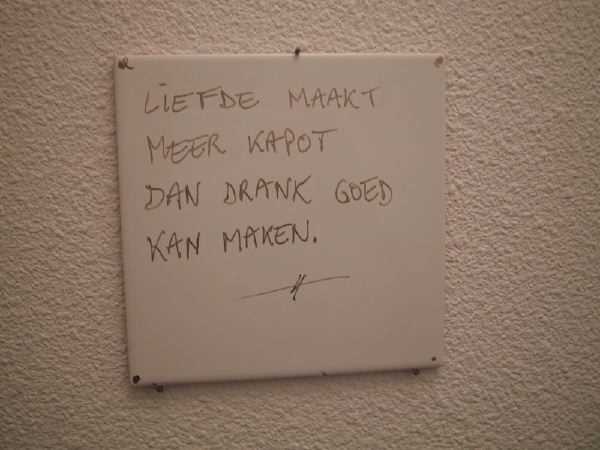 LIEFDE MAAKT
MEER KAPOT
DAN DRANK GOED
KAN MAKEN.